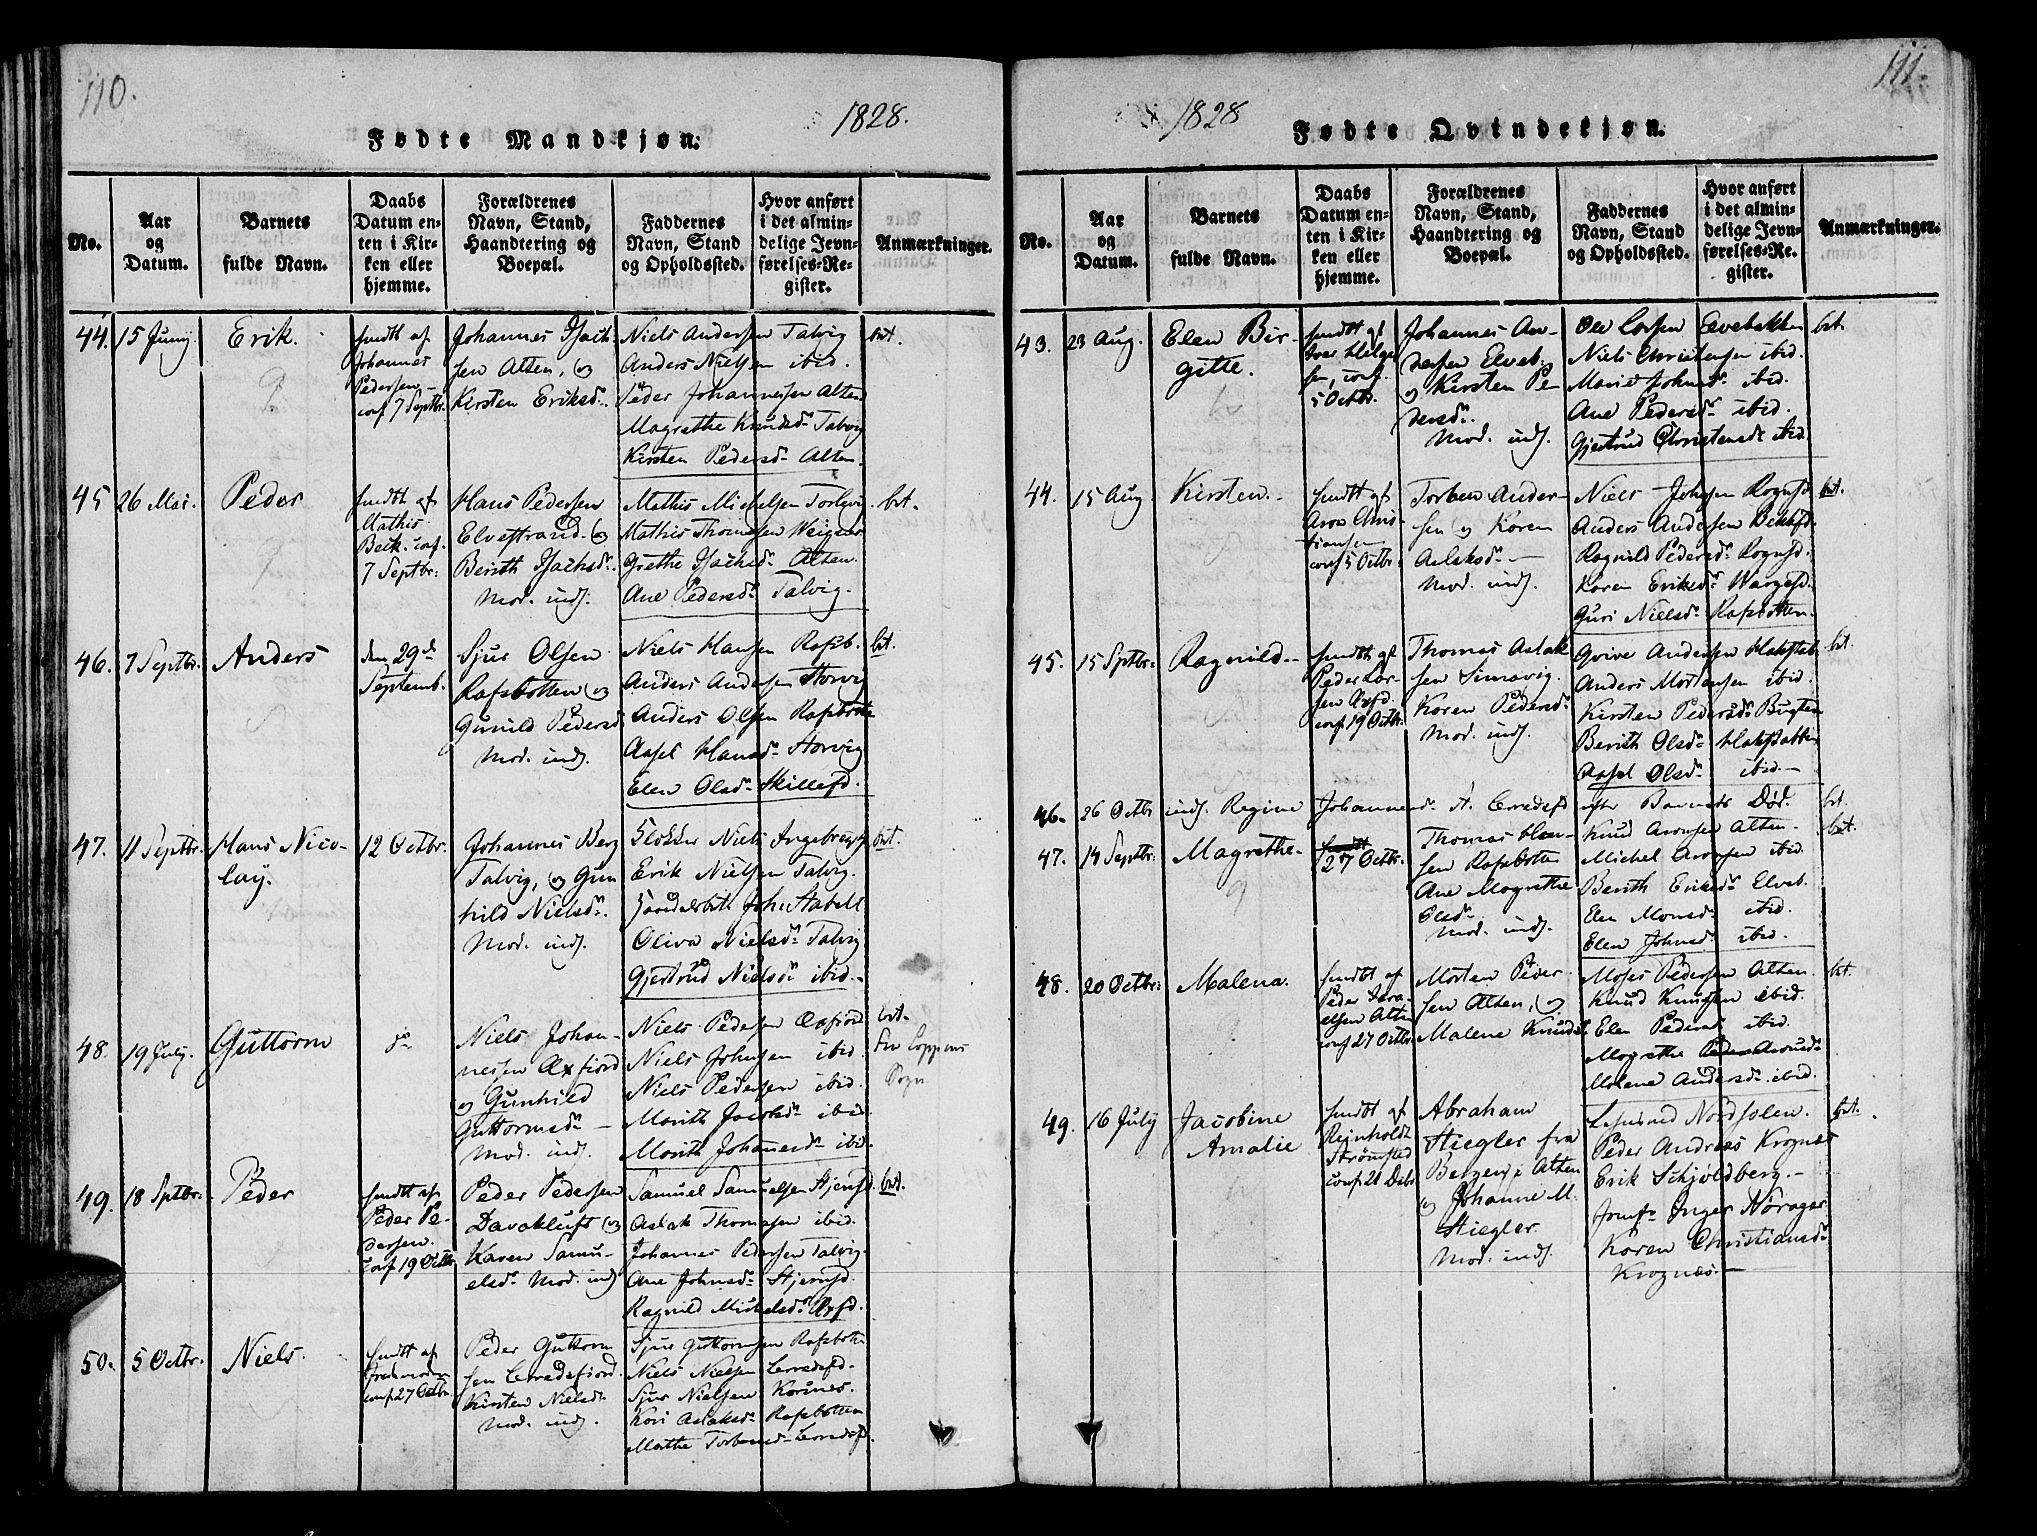 110.
1828.
Fødte Mandkjøn.
No.
Aar og Datum.
Barnets fulde Navn.
Daabs Datum enten i Kirken eller hjemme.
Forældrenes Navn, Stand, Haandtering og Boepæl.
Faddernes Navn, Stand og Opholdssted.
Hvor anført i det almindelige Jevnførelses-Register.
Anmærkninger.
44. 15 Juny Erik.
hmdt af
Johannes
Pedersen
conf 7 Septbr.
Johannes Isach
sen Alten, og
Kirsten Eriksd.
Niels Andersen Talvig
Anders Nielsen ibid.
Peder Johannesen Alten
Magrethe Knudsd. Talvig
Kirsten Pedersd. Alten
bet.
45 26 Mai. Peder
hmdt af
Mathis
Beck. conf.
7 Septbr:
Hans Pedersen
Elvestrand og
Berith Isachsd.
Mod. indf.
Mathis Michelsen
Mathis Thomesen
Grethe Isachsd. Alten.
Ane Pedersd. Talvig.
bet.
46. 7 Septbr. Anders
den 29de
Septemb.
Sjur Olsen
Rafsbotten og
Gunild Pedersd
Mod. indf.
Niels Hansen Rafsb.
Anders Andersen Storvig
Anders Olsen Rafsbotten
Aasel Hansd. Storvig
Elen Olsd. Skillefd.
bt.
47. 11 Septbr. Hans Nico-
lay.
12 Octbr.
Johannes Berg
Talvig, og Gun
hild Nielsd.
Mod. indf.
Klokker Niels Ingebregts
Erik Nielsen Talvig.
John Stabell
Oliva Nielsd. Talvig
Gjertrud Nielsd. ibid.
bt.
48. 19 July. Guttorm
do
Niels Johan-
nesen Oxfiord
og Gunhild
Guttormsd.
Mod. indf.
Niels Pedersen Oxfiord
Niels Johnsen ibid.
Niels Pedersen ibid.
Marith Jacobsd. ibid
Marith Johansd. ibid.
bt.
Fra Loppens
Sogn
49. 18 Sptbr. Peder
hmdt af
Peder Pe-
dersen.
conf 19 Octbr
Peder Pedersen
Davakluft og
Karen Samu-
elsd. Mod. indf
Samuel Samuelsen Stjernfd.
Aslak Thomesen ibid.
Johannes Pedersen Talvig
Ane Johnsd. Stjernfd.
Ragnild Michelsd. Oxfd.
bt.
50. 5 Octbr. Niels.
hmdt af
Jordmoder
conf 27 Octbr.
Peder Guttorm
sen Lerredsfiord
Kirsten Nielsd.
Mod. indf.
Sjur Guttormsen Rafsbotten
Niels Nielsen Lerredsfd.
Sjur Nielsen
Kari Aslaksd. Rafsbotten
Marthe Torbensd. Lerredsfd.
111.
1828
Fødte Qvindekjøn.
No.
Aar og Datum.
Barnets fulde Navn.
Daabs Datum enten i Kirken eller hjemme.
Forældrenes Navn, Stand, Haandtering og Boepæl.
Faddernes Navn, Stand og Opholdssted.
Hvor anført i det almindelige Jevnførelses-Register.
Anmærkninger.
43. 23 Aug. Elen Bir-
gitte.
hmdt af
Iver Helge
sen, conf.
5 Octbr.
Johannes An-
dersen Elveb.
og Kirsten Pe
dersd.
Mod. indf.
Ole Larsen Elvebakken
Niels Christensen ibid.
Marie Johnsd. ibid.
Ane Pedersd. ibid.
Gjertrud Christensd. ibid.
bt.
44. 15 Aug. Kirsten.
hmdt af
Aron Chris-
tiansen
conf 5 Octbr.
Torben Ander-
sen og Karen
Aslaksd.
Mod. indf.
Niels Johnsen Rognfd.
Anders Andersen
Ragnild Pedersd. Rognfd.
Karen Eriksd. Wargsfd.
Guri Nielsd. Rafsbotten
bt.
45. 15 Sptbr. Ragnild
hmdt af
Peder Lar-
sen Oxfd.
conf 19 Octbr.
Thomas Aslak
sen Simavig.
Karen Pedersd
Mod. indf.
Qvive Andersen Hakstab
Anders Mortensen ibid.
Kirsten Pedersd. Bugten
Berith Olsd. Hakstabben
Aasel Olsd. ibid.
bt.
46. 26 Octbr indf. Regine Johannesd. A. Lerredsfd efter Barnets Død. bt.
47. 14 Septbr. Magrethe.
27 Octbr.
Thomas Han-
sen Rafsbotten
Ane Magrethe
Olsd.
Mod. indf.
Knud Aronsen Alten
Michel Aronsen ibid.
Berith Eriksd. Elveb.
Elen Monsd. ibid.
Elen Johnsd. ibid.
bt.
48. 20 Octbr: Malena.
hmdt af
Peder Isra-
elsen Alten
conf 27 Octbr
Morten Peder
sen Alten, og
Malene Knudsd.
Moses Pedersen Alten
Knud Knudsen ibid.
Elen Pedersd. ibid.
Magrethe
Malene Andersd. ibid.
bt.
49. 16 July Jacobine
Amalie
hmdt af
Reinholdt
Strømsted
conf 21 Decbr
Abraham
Stiegler fra
Bergen, i Alten
og Johanne M.
Stiegler
Mod. indf.
Lensmed Nordfolen.
Peder Andreas Krognæs
Erik Schjoldberg.
Jomf. Inger Norager
Karen Christiansd.
Krognæs.
bt.